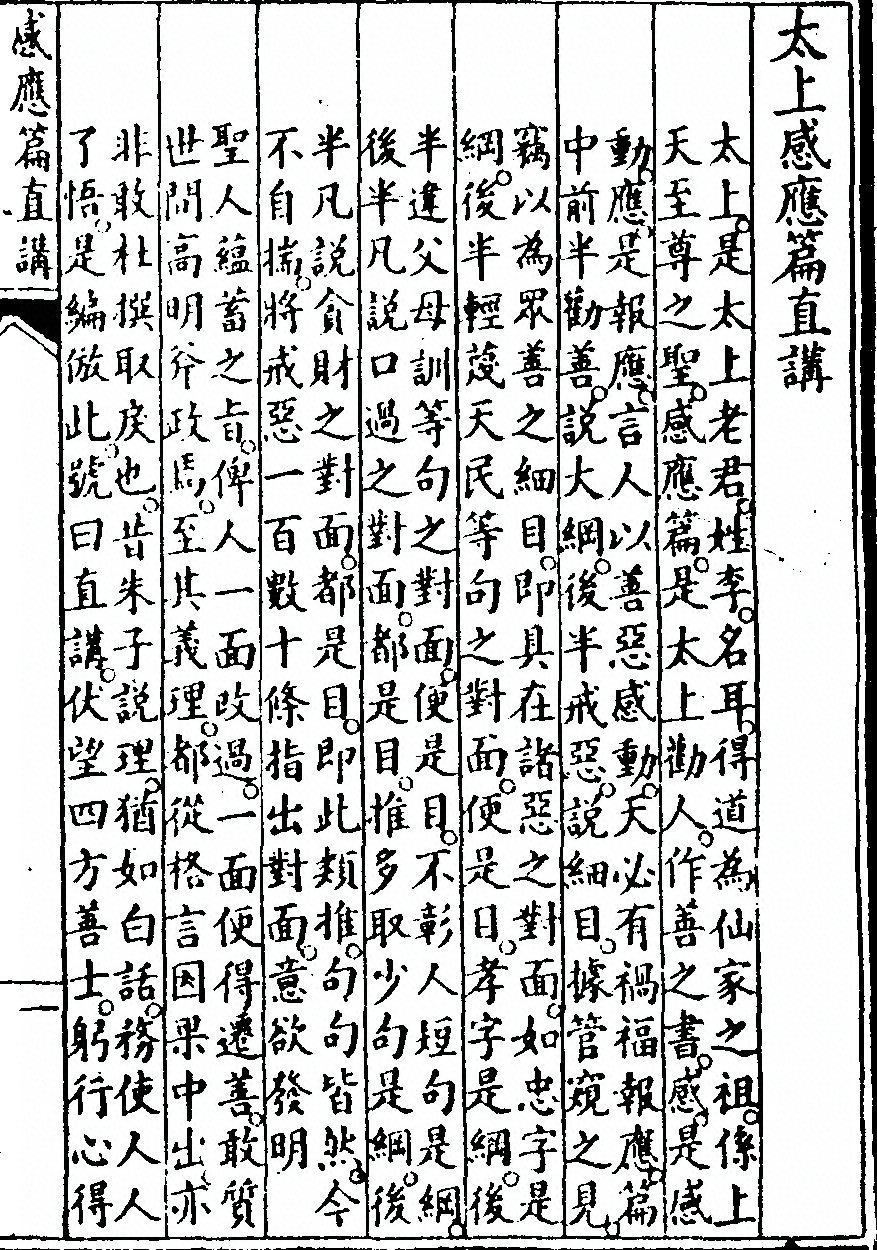 太上感應篇直講
太上。是太上老君。姓李。名耳。得道為仙家之祖。係上
天至尊之聖。感應篇。是太上勸人。作善之書。感。是感
動。應。是報應。言人以善惡感動。天必有禍福報應。篇
中前半勸善。說大綱。後半戒惡。說細目。據管窺之見。
竊以為眾善之細目。即具在諸惡之對面。如忠字是
綱。後半輕蔑天民等句之對面。便是目。孝字是綱。後
半違父母訓等句之對面。便是目。不彰人短句是綱。
後半凡說口過之對面。都是目。推多取少句是綱。後
半凡說貪財之對面。都是目。即此類推。句句皆然。今
不自揣。將戒惡一百數十條指出對面。意欲發明
聖人蘊蓄之旨。俾人一面改過。一面便得遷善。敢質
世間高明斧政焉。至其義理。都從格言因果中出。亦
非敢杜撰取戾也。昔朱子說理。猶如白話。務使人人
了悟。是編倣此。號曰直講。伏望四方善士。躬行心得
感應篇直講